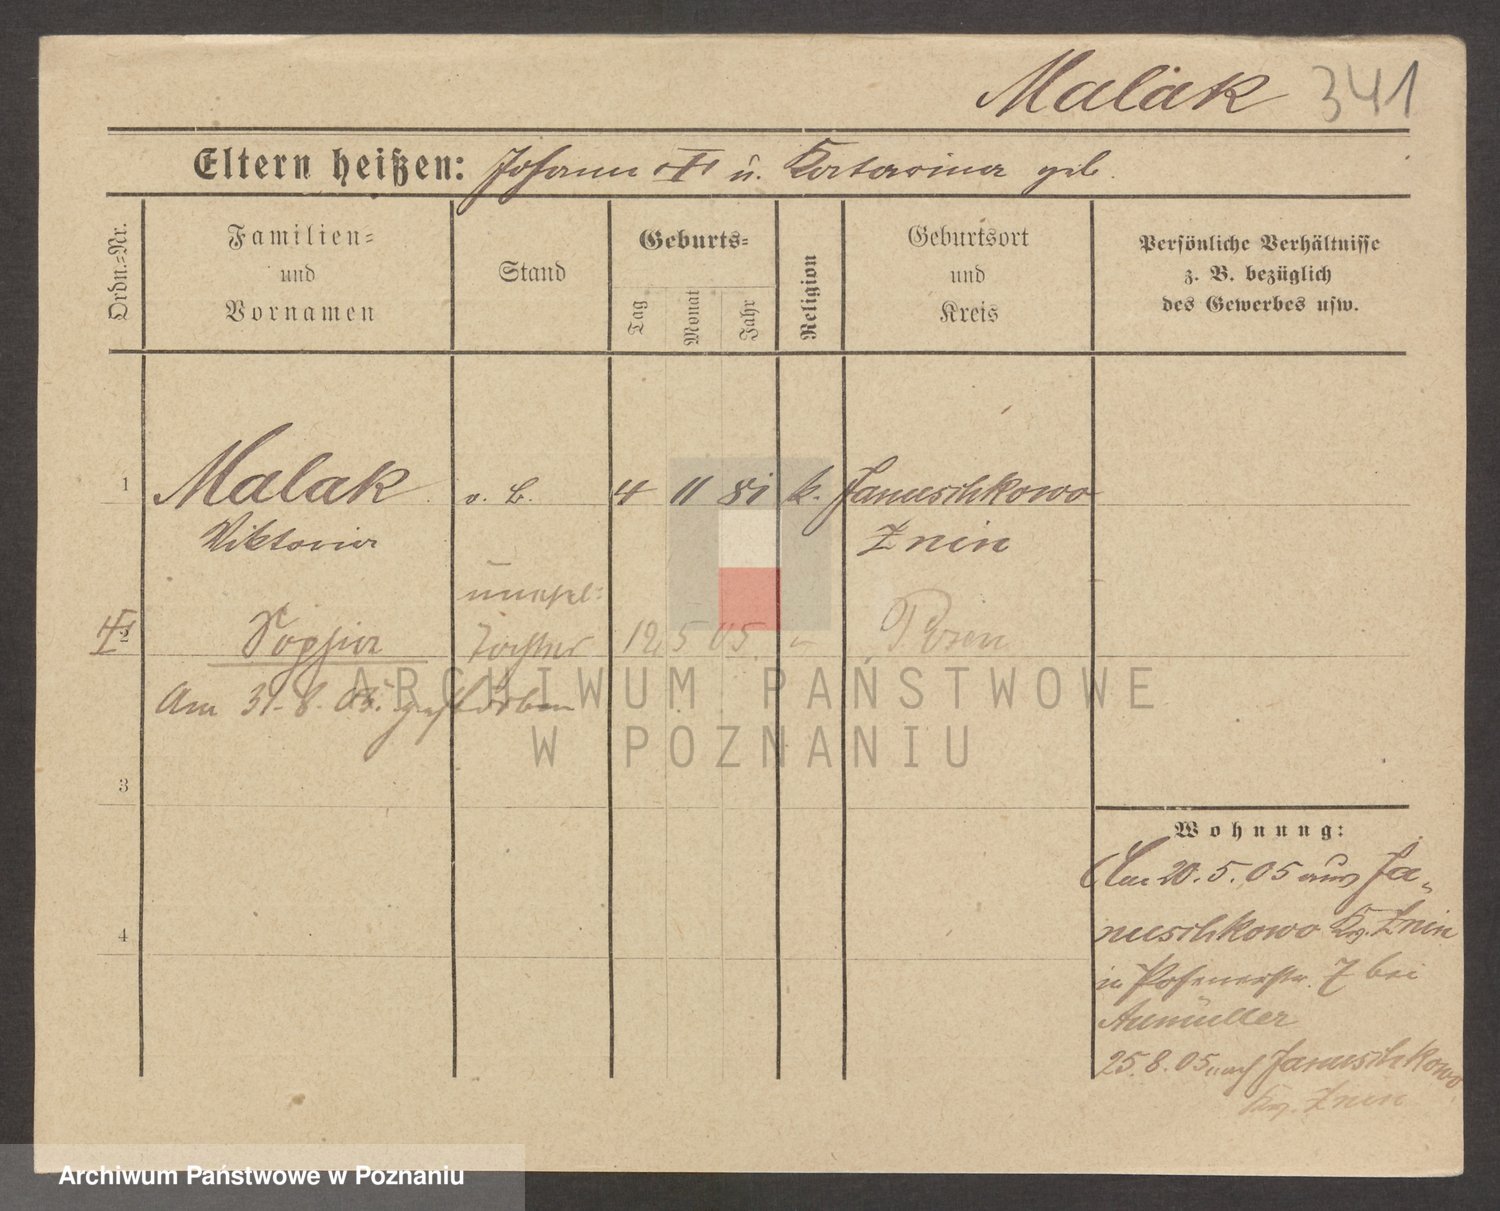 Malak 341
Eltern heißen: Johann ✝ u. Katarina geb.
Ordn.=Nr.
Familien=
und
Vornamen
Stand
Geburts=
Tag
Monat
Jahr
Religion
Geburtsort
und
Kreis
Persönliche Verhältnisse
z. B. bezüglich
des Gewerbes usw.
1 Malak o. B. 4 11 81 k. Januschkowo
Viktoria Znin
unehel:
2 Sophia Tochter 12 5 05 " Posen
Am 31.8.05. gestorben
ARCHIWUM PAŃSTWOWE
W POZNANIU
3
Wohnung:
Am 20.5.05 aus Ja-
nuschkowo Kr. Znin
4
in Posenerstr. 7 bei
Aumüller
25.8.05 nach Januschkowo
Kr. Znin
Archiwum Państwowe w Poznaniu